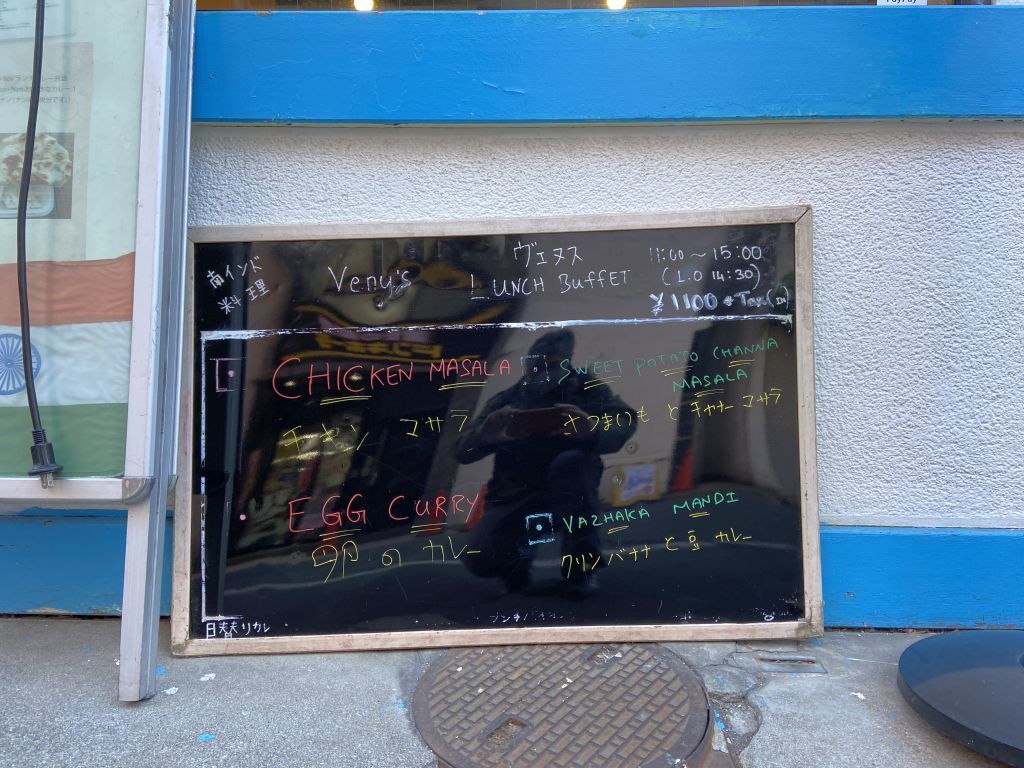 南インド
料理
Venu's
ヴェヌス
LUNCH BUFFET
11:00～15:00
(L.O 14:30)
¥1100 + Tax
CHICKEN MASALA
チキン マサラ
SWEET POTATO CHANNA
MASALA
さつまいも と チャナー マサラ
EGG CURRY
卵 の カレー
VAZHAKA MANDI
グリン バナナ と 豆 カレー
PayPay